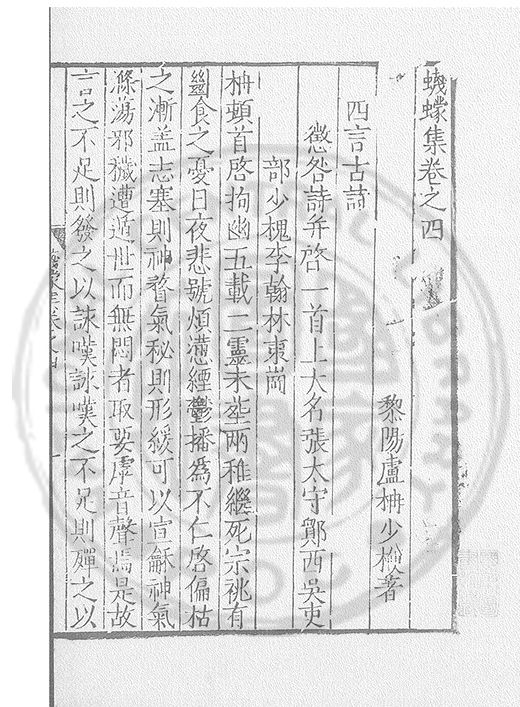 蠛蠓集卷之四
黎陽盧柟少楩著
四言古詩
懲咎詩并啓一首上大名張太守鄴西吳吏
部少槐李翰林東崗
柟頓首啓拘幽五載二靈未塟兩稚繼死宗祧有
餒食之憂日夜悲號煩懣經鬱播為不仁啓偏枯
之漸盖志塞則神瞀氣秘則形緩可以宣龢神氣
滌蕩邪穢遭遁世而無悶者取要虖音聲焉是故
言之不足則發之以詠嘆詠嘆之不足則殫之以